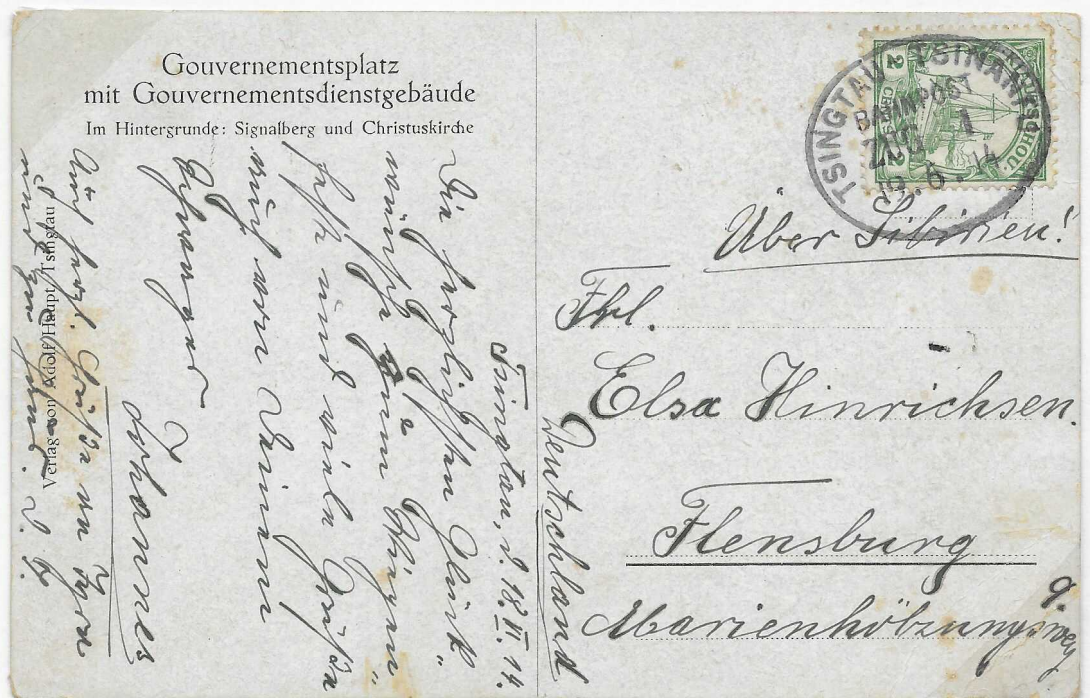 Gouvernementsplatz
mit Gouvernementsdienstgebäude
Im Hintergrunde: Signalberg und Christuskirche
Verlag von Adolf Haupt, Tsingtau
Tsingtau, d. 18. VI. 14.
Die herzlichsten Glück-
wünsche zum
feste und viele Grüße
auch von Deinem
Johannes
Auch herzl. Grüße an Ihre
TSINGTAU TSINANFU
BAHNPOST
ZUG 1
19.6.14
KIAUTSCHOU
2
CENTS
2
Über Sibirien!
Frl.
Elsa Hinrichsen.
Flensburg
Marienhölzungsweg
9
Deutschland